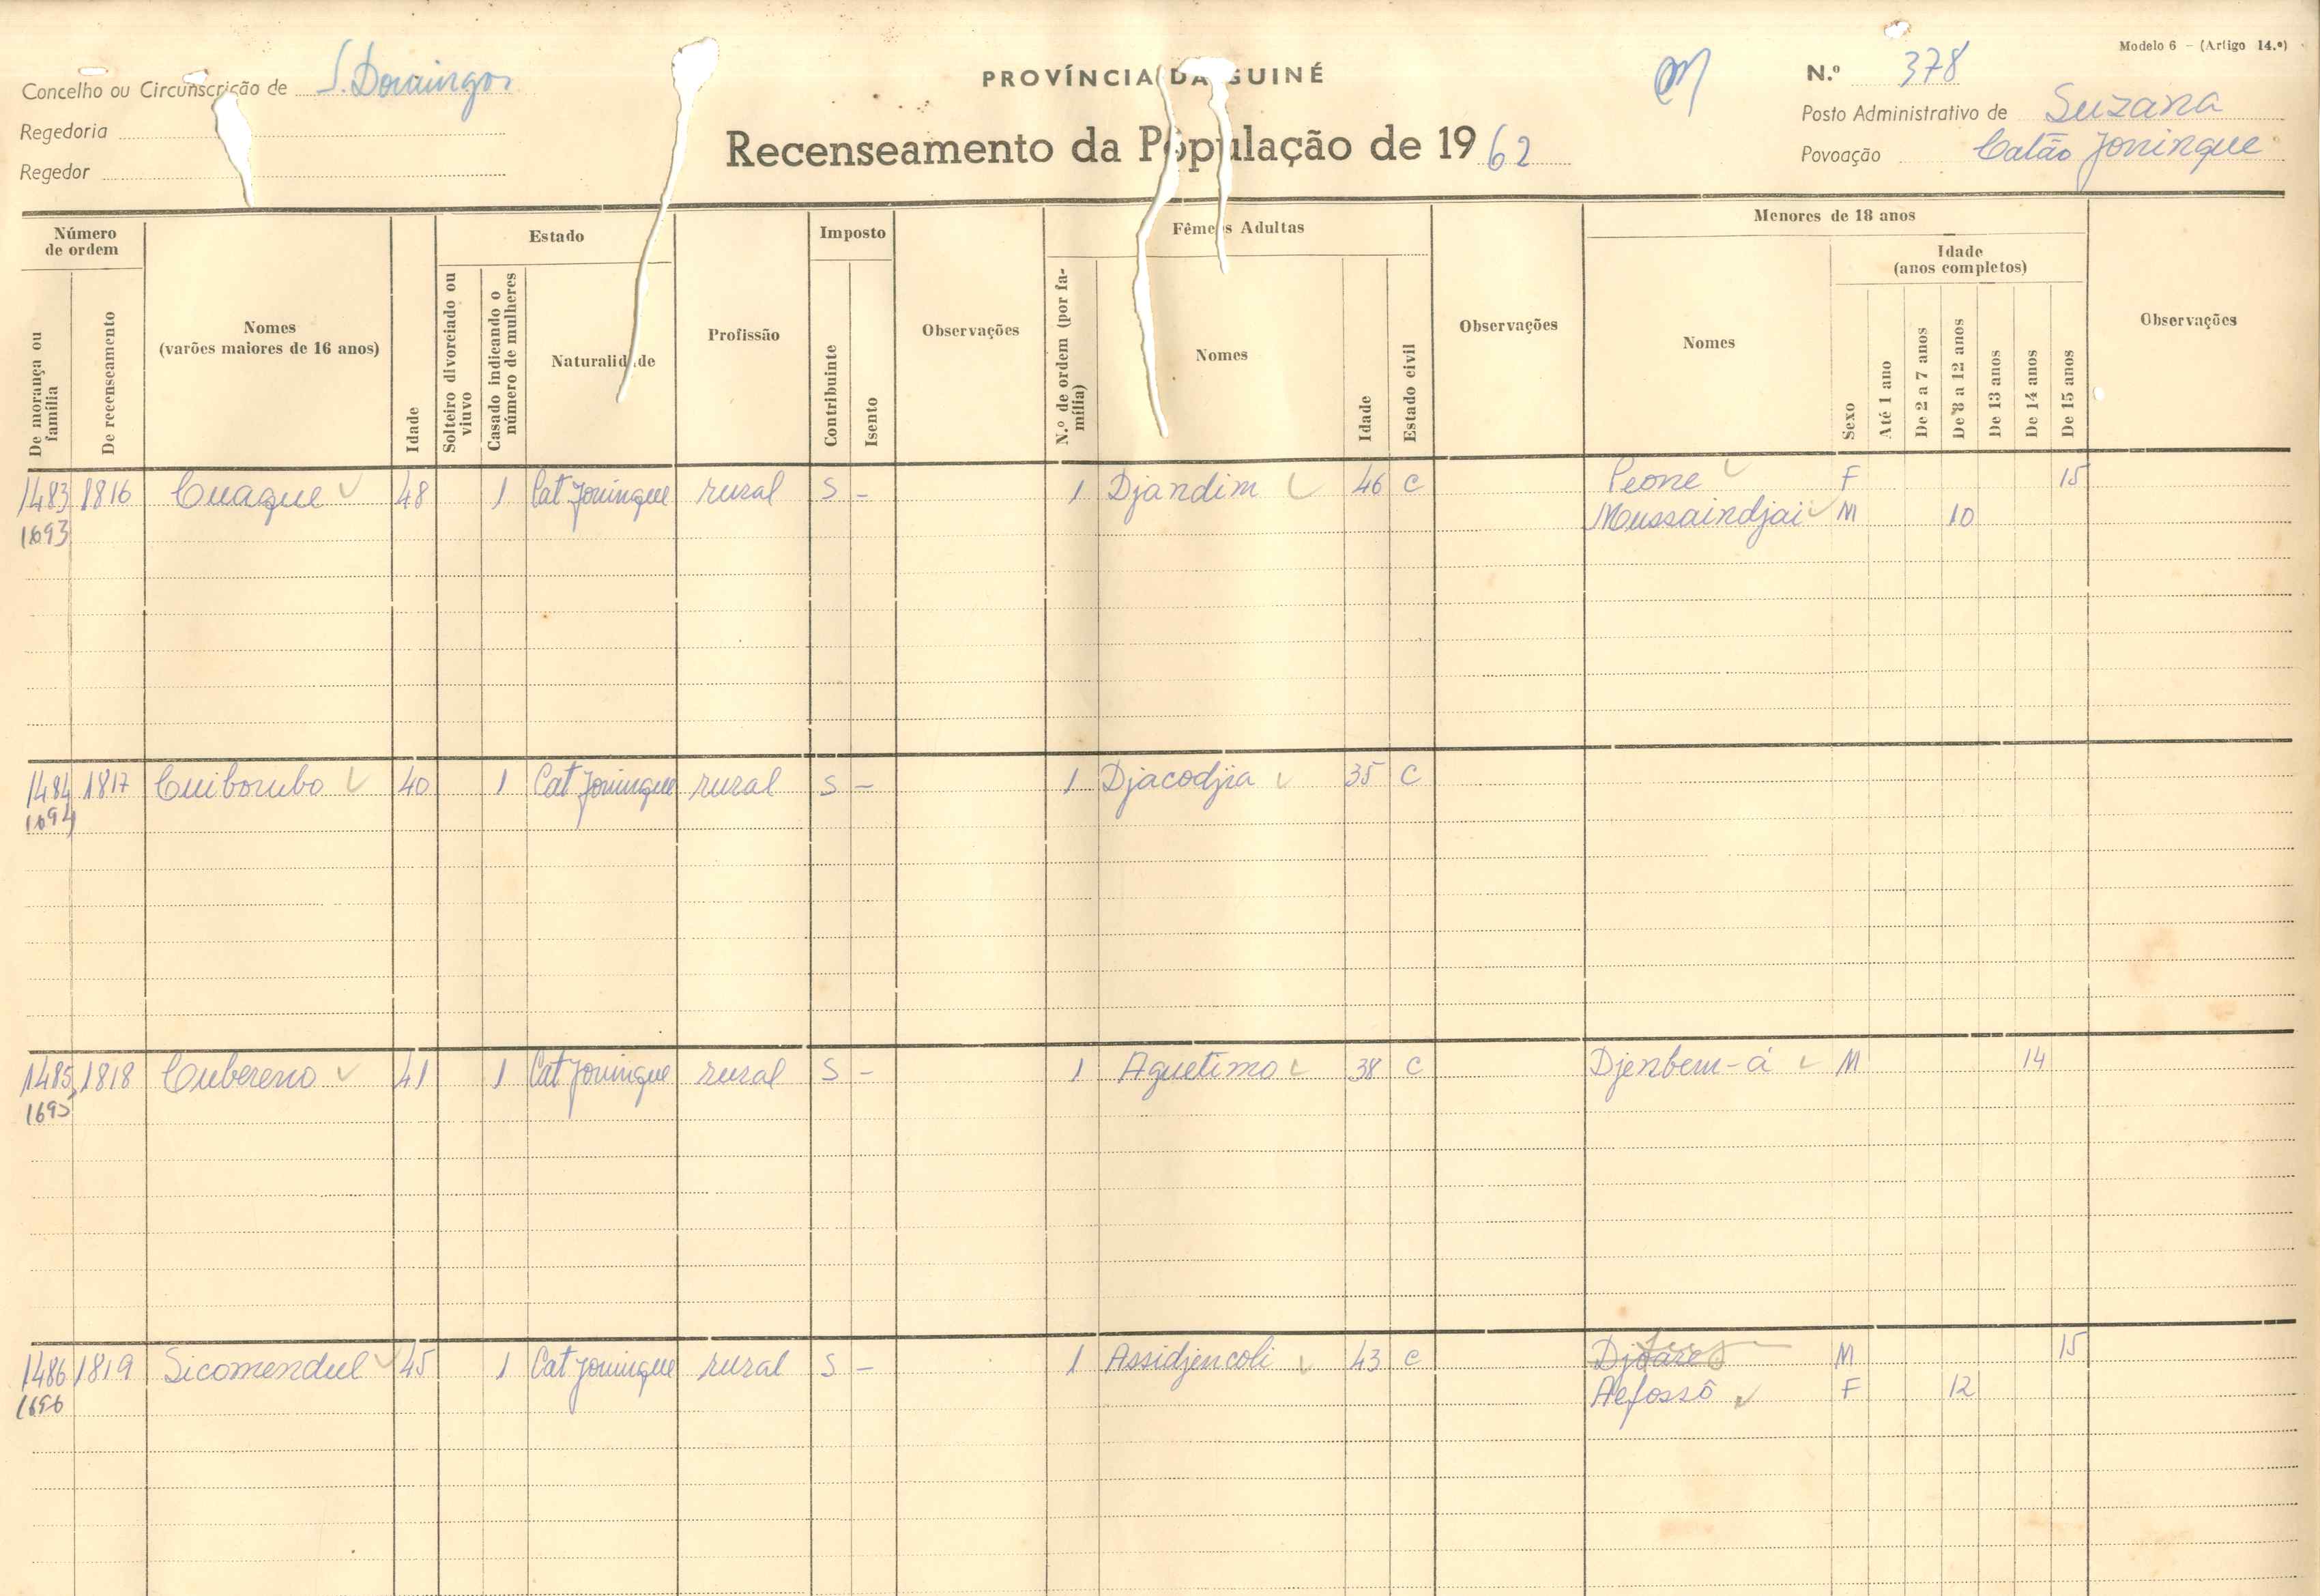 Modelo 6 - (Artigo 14.º)
Concelho ou Circunscrição de S. Domingos
PROVÍNCIA DA GUINÉ
N.º 378
Regedoria
Recenseamento da População de 1962
Posto Administrativo de Suzana
Regedor
Povoação Catão Joningue
Número de ordem
Estado
Imposto
Fêmeas Adultas
Menores de 18 anos
Idade (anos completos)
De morança ou família
De recenseamento
Nomes (varões maiores de 16 anos)
Idade
Solteiro divorciado ou viuvo
Casado indicando o número de mulheres
Naturalidade
Profissão
Contribuinte
Isento
Observações
N.º de ordem (por família)
Nomes
Idade
Estado civil
Observações
Nomes
Sexo
Até 1 ano
De 2 a 7 anos
De 8 a 12 anos
De 13 anos
De 14 anos
De 15 anos
Observações
1483 1816 Cuaque 48 1 Cat Joningue rural S - 1 Djandim 46 C Peone F 15
1693 Mussaindjai M 10
1484 1817 Cuiborubo 40 1 Cat Joningue rural S - 1 Djacodjia 35 C
1694
1485 1818 Cubereno 41 1 Cat Joningue rural S - 1 Aguetimo 38 C Djenbem-á M 14
1695
1486 1819 Sicomendul 45 1 Cat Joningue rural S - 1 Assidjencoli 43 C M 15
1696 Aefossô F 12